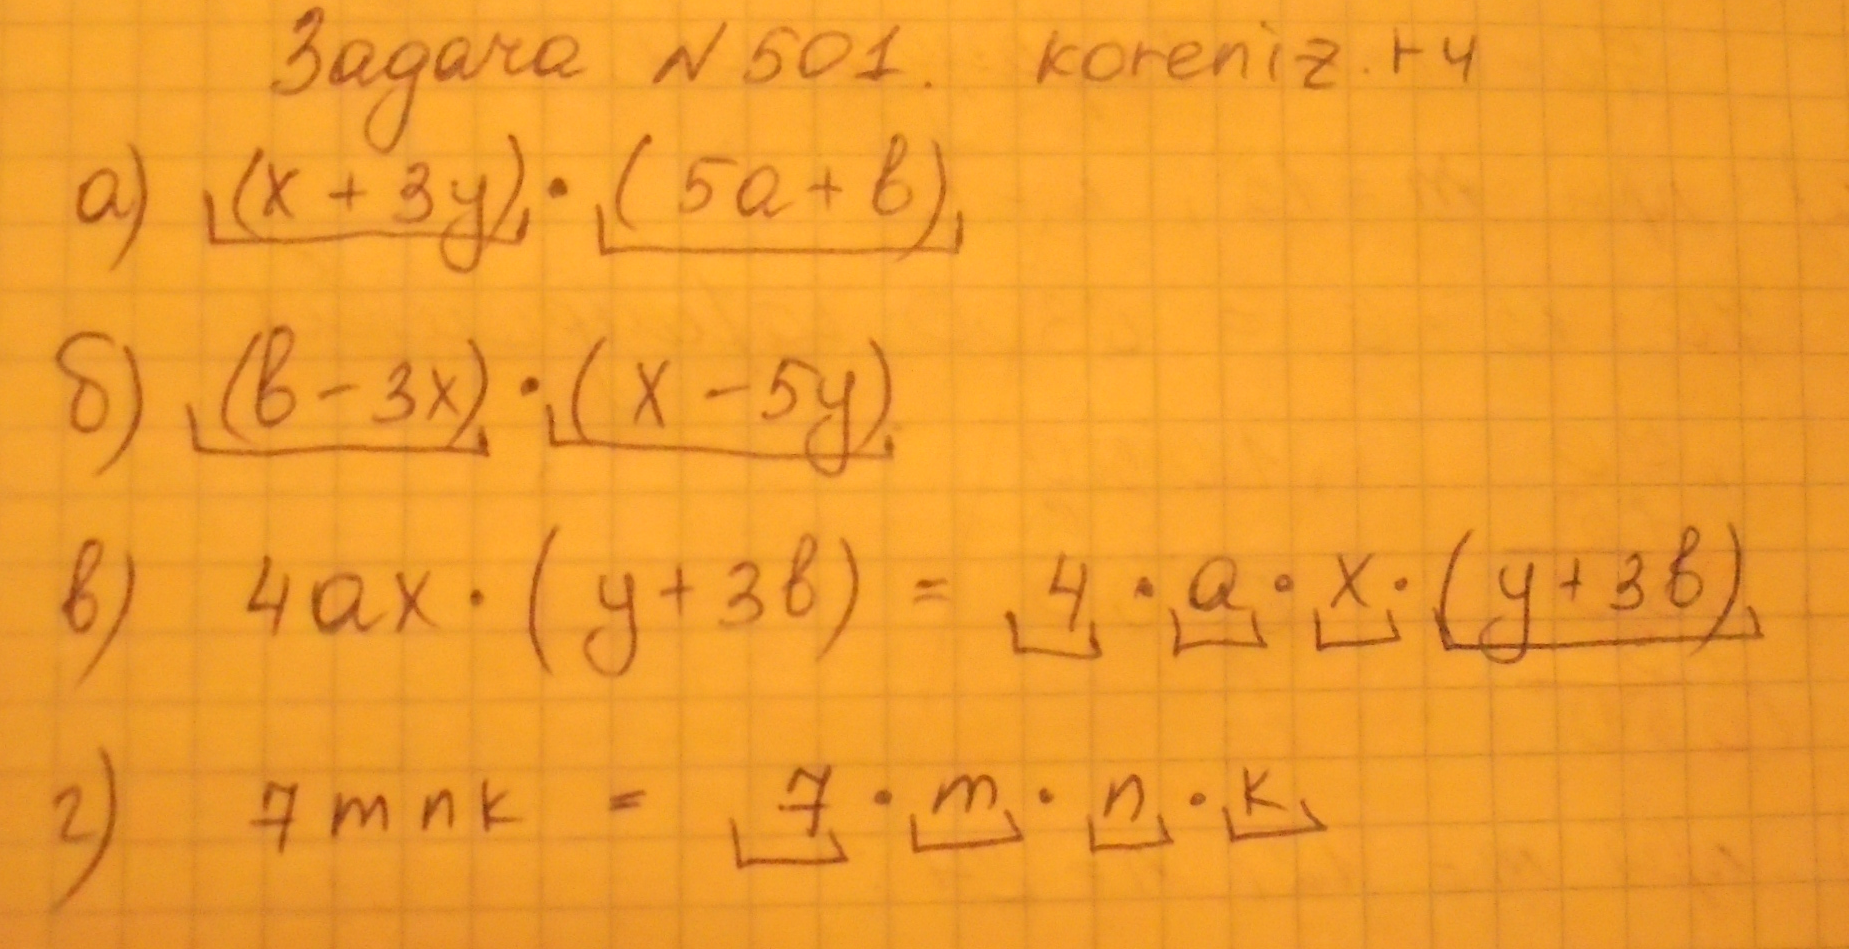 Задача №501. koreniz.ru
а) (x + 3y) · (5a + b)
б) (b - 3x) · (x - 5y)
в) 4ax · (y + 3b) = 4 · a · x · (y + 3b)
г) 7mnk = 7 · m · n · k